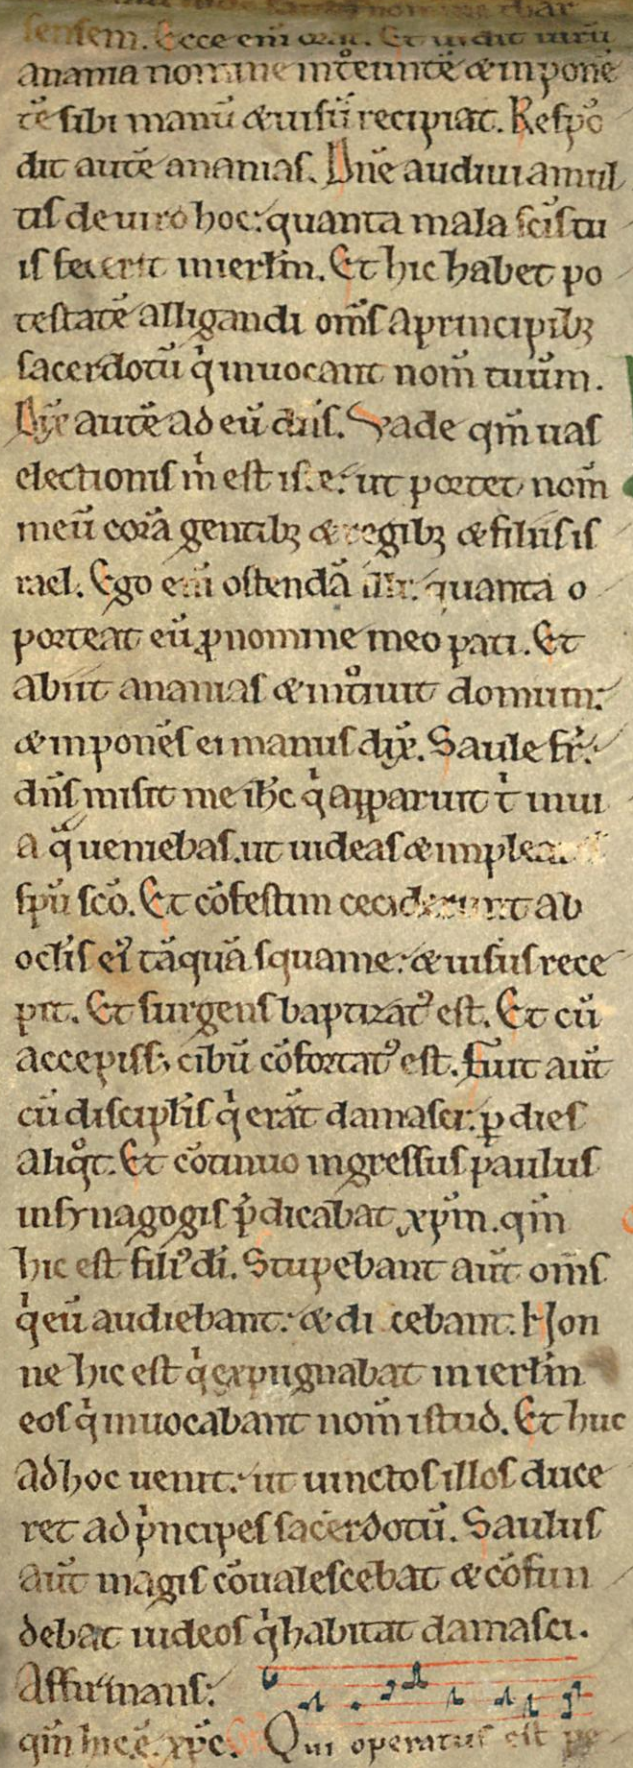 sensem. Ecce eni orat. Et uidit uirū
anania nomine intͦeuntē & inponē
tē sibi manū & uisū recipiat. Respō
dit autē ananias. Dn̄e audiui amul
tis de uiro hoc: quanta mala sc̄is tu
is fecerit inierlm̄. Et hic habet po
testatē alligandi om̄s aprincipibꝫ
sacerdotū qͥ inuocant nom̄ tuūm.
Dix̄ autē ad eū dn̄s. Vade qm̄ uas
electionis m̄ est is.e. ut portet nom̄
meū corā gentibꝫ & regibꝫ & filiis is
rael. Ego eni ostendā illi: quanta o
porteat eū ꝓ nomine meo pati. Et
abiit ananias & intͦiuit domum:
& inponēs ei manus dix̄. Saule fr̄.
dn̄s misit me ih̄c qͥ apparuit tͥ inui
a qͣ ueniebas. ut uideas & implea
spū sc̄o. Et cōfestim ceciderunt ab
oclīs eiꝰ tāquā squame: & uisus rece
pit. Et surgens baptizatꝰ est. Et cū
accepiss; cibū cōfortatꝰ est. Fuit aut̄
cū disciplīs qͥ erāt damasci: ꝑ dies
aliqͦt. Et cōtinuo ingressus paulus
insynagogis p̄dicabat xpm̄. qm̄
hic est filiꝰ dī. Stupebant aut̄ om̄s
qͥ eū audiebant: & di cebant. Non
ne hic est qͥ expugnabat inierlm̄
eos qͥ inuocabant nom̄ istud. Et huc
adhoc uenit: ut uinctos illos duce
ret ad pͥncipes sacerdotū. Saulus
aut̄ magis cōualescebat & cōfun
debat iudeos qͥ habitāt damasci.
Affirmans:
qm̄ hic.ē. xp̄c. Qui operatus est pe